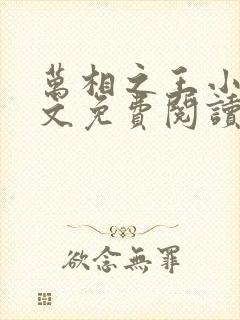 萬相之王小
文免費閱讀
欲念無罪